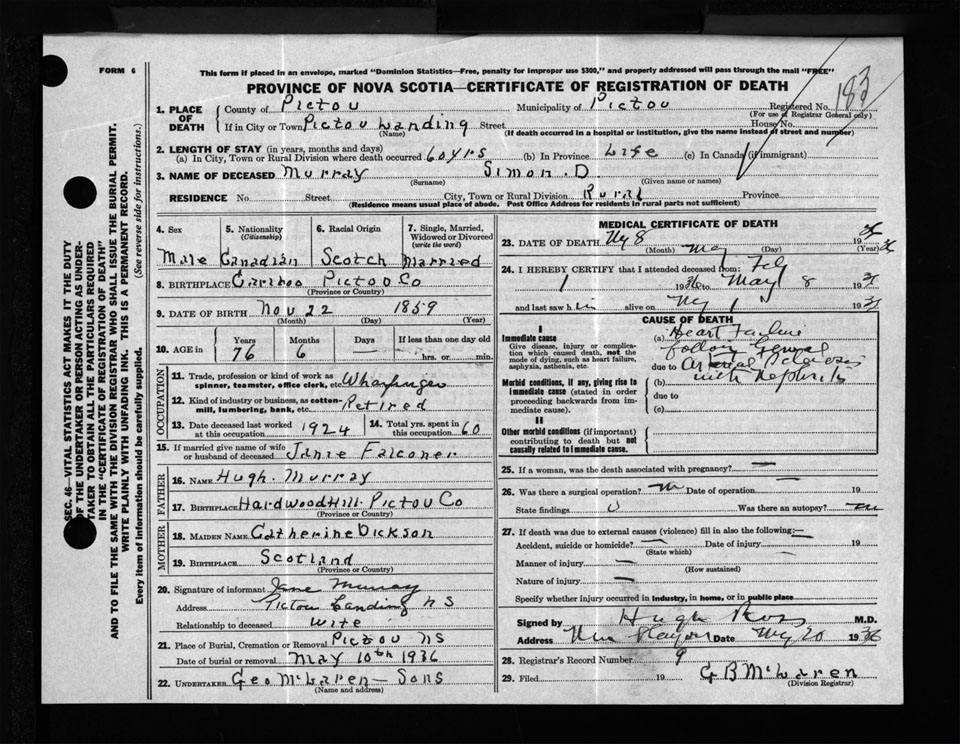 FORM 6
This form if placed in an envelope, marked "Dominion Statistics—Free, penalty for improper use $300," and properly addressed will pass through the mail "FREE"
PROVINCE OF NOVA SCOTIA—CERTIFICATE OF REGISTRATION OF DEATH
183
1. PLACE OF DEATH
County of Pictou Municipality of Pictou Registered No.
(For use of Registrar General only)
If in City or Town Pictou Landing Street House No.
(Name) (If death occurred in a hospital or institution, give the name instead of street and number)
2. LENGTH OF STAY (in years, months and days)
(a) In City, Town or Rural Division where death occurred 60 yrs (b) In Province Life (c) In Canada (if immigrant)
3. NAME OF DECEASED Murray Simon. D
(Surname) (Given name or names)
RESIDENCE No. Street City, Town or Rural Division Rural Province
(Residence means usual place of abode. Post Office Address for residents in rural parts not sufficient)
4. Sex 5. Nationality (Citizenship) 6. Racial Origin 7. Single, Married, Widowed or Divorced (write the word)
Male Canadian Scotch Married
8. BIRTHPLACE Cariboo Pictou Co
(Province or Country)
9. DATE OF BIRTH Nov 22 1859
(Month) (Day) (Year)
10. AGE in Years Months Days If less than one day old
76 6 — hrs. or min.
OCCUPATION
11. Trade, profession or kind of work as spinner, teamster, office clerk, etc. Wharfinger
12. Kind of industry or business, as cotton-mill, lumbering, bank, etc. Retired
13. Date deceased last worked at this occupation 1924 14. Total yrs. spent in this occupation 60
15. If married give name of wife or husband of deceased Janie Falconer
FATHER
16. NAME Hugh. Murray
17. BIRTHPLACE Hardwood Hill Pictou Co
(Province or Country)
MOTHER
18. MAIDEN NAME Catherine Dickson
19. BIRTHPLACE Scotland
(Province or Country)
20. Signature of informant Jane Murray
Address Pictou Landing N S
Relationship to deceased wife
21. Place of Burial, Cremation or Removal Pictou NS
Date of burial or removal May 10th 1936
22. UNDERTAKER Geo McLaren – Sons
(Name and address)
MEDICAL CERTIFICATE OF DEATH
23. DATE OF DEATH 8 19
(Month) (Day) (Year)
24. I HEREBY CERTIFY that I attended deceased from:
1 1936 to May 8 19
and last saw h alive on 19
CAUSE OF DEATH
I
Immediate cause
Give disease, injury or complication which caused death, not the mode of dying, such as heart failure, asphyxia, asthenia, etc.
(a) Heart Failure
due to
Morbid conditions, if any, giving rise to immediate cause (stated in order proceeding backwards from immediate cause).
(b) with
due to
(c)
II
Other morbid conditions (if important) contributing to death but not causally related to immediate cause.
25. If a woman, was the death associated with pregnancy? —
26. Was there a surgical operation? Date of operation 19
State findings Was there an autopsy?
27. If death was due to external causes (violence) fill in also the following:—
Accident, suicide or homicide? — Date of injury — 19
(State which)
Manner of injury —
(How sustained)
Nature of injury —
Specify whether injury occurred in industry, in home, or in public place
Signed by Hugh Ross M.D.
Address Date 20 1936
28. Registrar's Record Number 9
29. Filed 19 G B McLaren
(Division Registrar)
SEC. 46—VITAL STATISTICS ACT MAKES IT THE DUTY
OF THE UNDERTAKER OR PERSON ACTING AS UNDERTAKER TO OBTAIN ALL THE PARTICULARS REQUIRED
IN THE "CERTIFICATE OF REGISTRATION OF DEATH"
AND TO FILE THE SAME WITH THE DIVISION REGISTRAR WHO SHALL ISSUE THE BURIAL PERMIT.
WRITE PLAINLY WITH UNFADING INK. THIS IS A PERMANENT RECORD.
Every item of information should be carefully supplied. (See reverse side for instructions.)